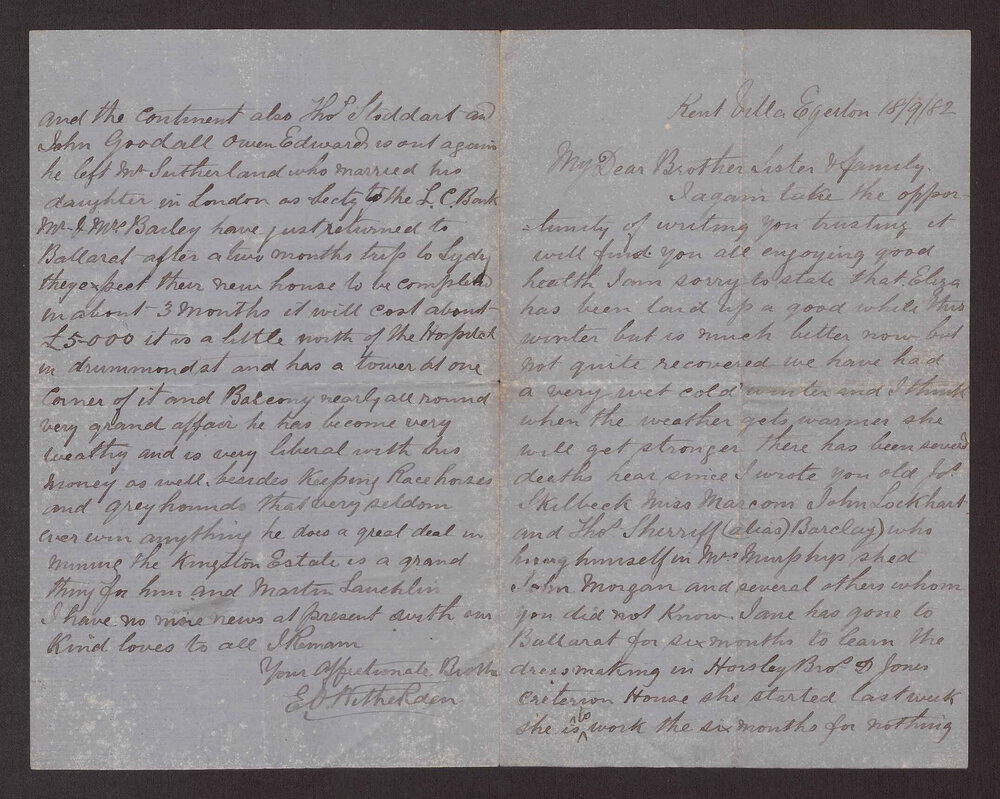 Kent Villa Egerton 18/9/82
My Dear Brother Sister & family.
I again take the oppor-
-tunity of writing you trusting it
will find you all enjoying good
health I am sorry to state that Eliza
has been laid up a good while this
winter but is much better now but
not quite recovered we have had
a very wet cold winter and I think
when the weather gets warmer she
will get stronger there has been several
deaths hear since I wrote you old Jos
Skilbeck Miss Marcom John Lockhart
and Thos Sherriff (alias) Barclay who
hung himself in Mrs Murphys shed
John Morgan and several others whom
you did not know. Jane has gone to
Ballarat for six months to learn the
dressmaking in Horsley Bros & Jones
Criterion House she started last week
she is to work the six months for nothing
and the Continent also Thos Stoddart and
John Goodall Owen Edwards is out again
he left Mr Sutherland who married his
daughter in London as Secty to the L.C. Bank
Mr & Mrs Bailey have just returned to
Ballarat after a two months trip to Sydny
they expect their new house to be completed
in about 3 months it will cost about
£5-000 it is a little north of the Hospital
in drummond st and has a tower at one
Corner of it and Balcony nearly all round
very grand affair he has become very
wealthy and is very liberal with his
money as well. besides keeping Racehorses
and greyhounds that very seldom
ever win anything he does a great deal in
mining the Kingston Estate is a grand
thing for him and Martin Laughlin
I have no more news at present with our
Kind loves to all I Remain
Your Affectionate Brother
E Witherden